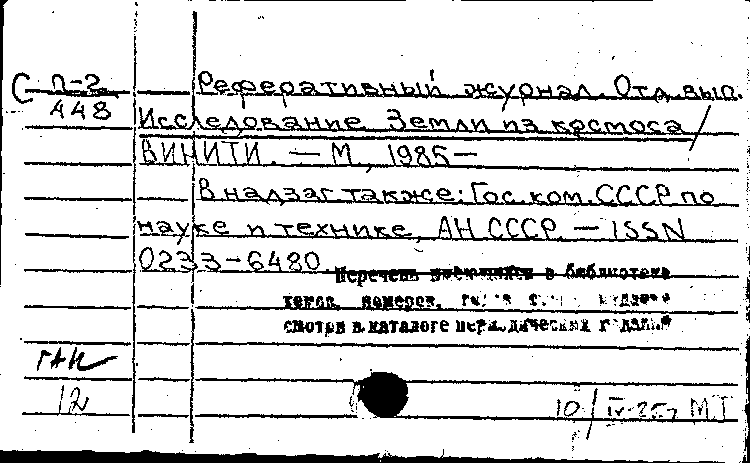 С П-2 Реферативный журнал. Отд. вып.
448 Исследование Земли из космоса /
ВИНИТИ. — М., 1985—
В надзаг также: Гос. ком. СССР по
науке и технике, АН СССР. — ISSN
0233-6480
Перечень имеющихся в библиотеке
томов, номеров,
смотри в каталоге периодических изданий
ГАК
12
10/IV-85г МТ